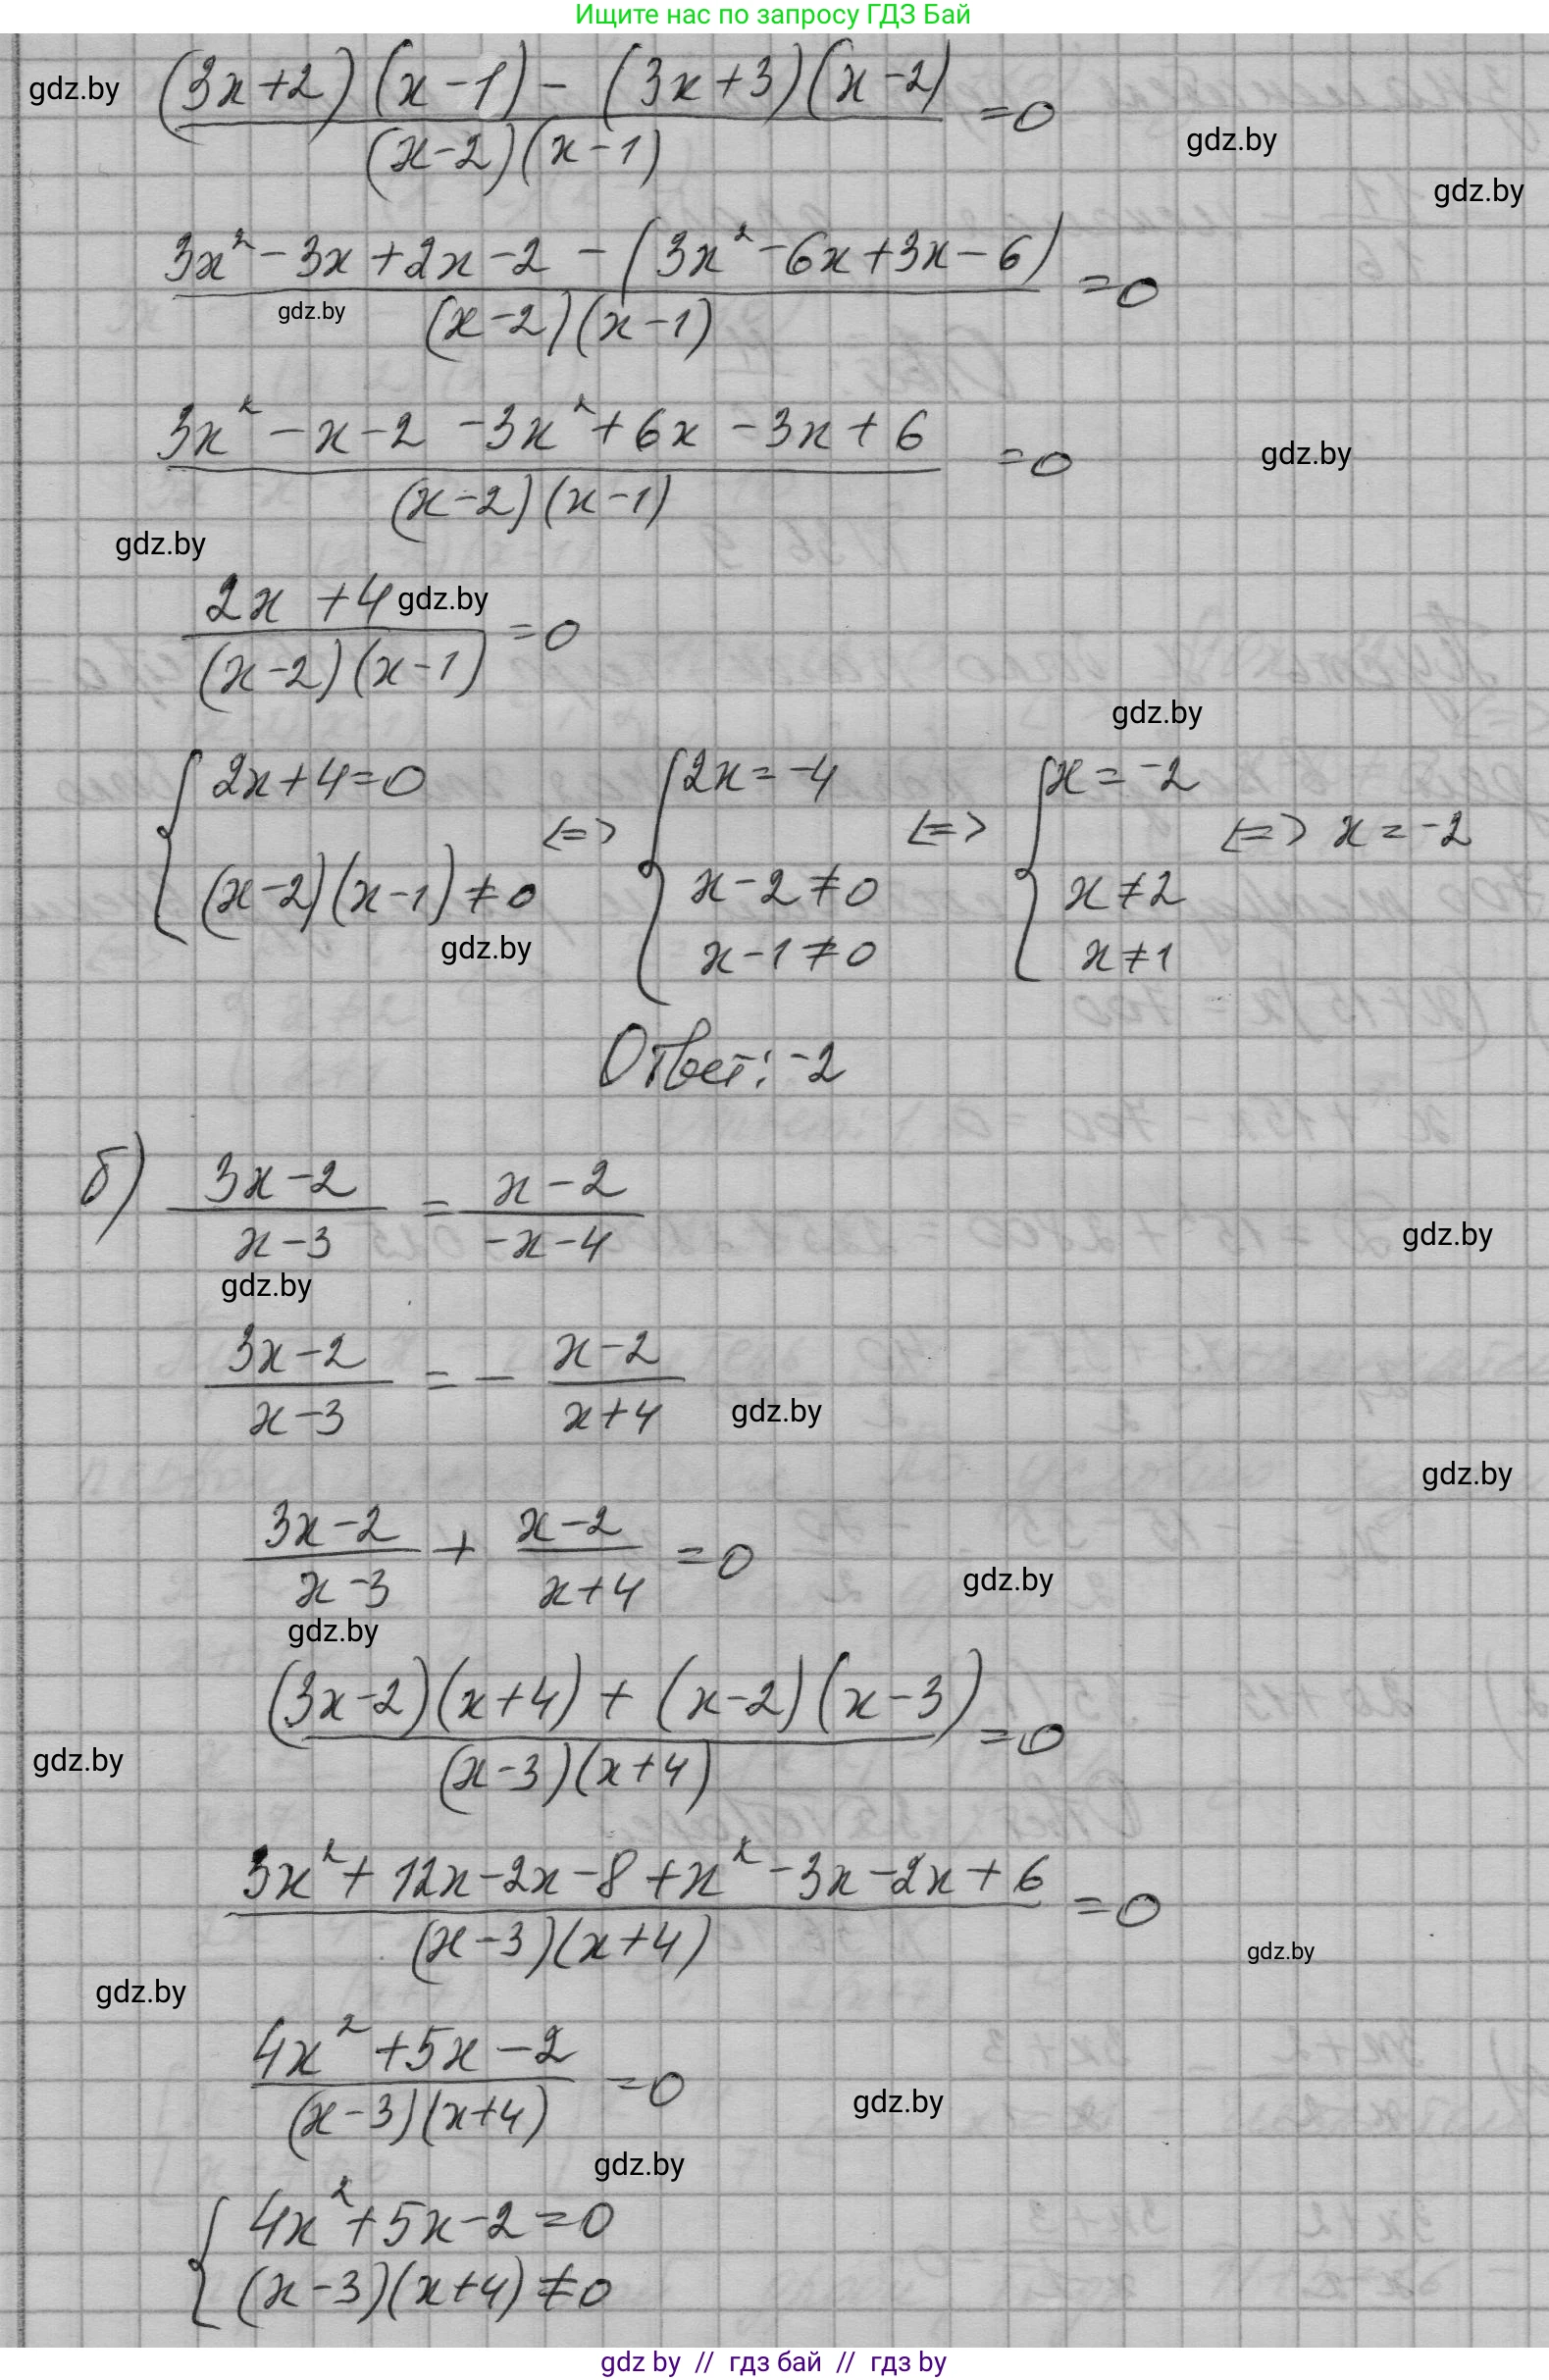 Ищите нас по запросу ГДЗ Бай
gdz.by
((3x+2)(x-1) - (3x+3)(x-2))/((x-2)(x-1)) = 0
gdz.by
gdz.by
(3x² - 3x + 2x - 2 - (3x² - 6x + 3x - 6))/((x-2)(x-1)) = 0
gdz.by
(3x² - x - 2 - 3x² + 6x - 3x + 6)/((x-2)(x-1)) = 0
gdz.by
gdz.by
(2x + 4)/((x-2)(x-1)) = 0
gdz.by
gdz.by
{ 2x+4=0 <=> { 2x=-4 <=> { x=-2 <=> x=-2
(x-2)(x-1)≠0 x-2≠0 x≠2
x-1≠0 x≠1
gdz.by
Ответ: -2
б) (3x-2)/(x-3) = (x-2)/(-x-4)
gdz.by
gdz.by
(3x-2)/(x-3) = - (x-2)/(x+4)
gdz.by
gdz.by
(3x-2)/(x-3) + (x-2)/(x+4) = 0
gdz.by
gdz.by
((3x-2)(x+4) + (x-2)(x-3))/((x-3)(x+4)) = 0
gdz.by
(3x² + 12x - 2x - 8 + x² - 3x - 2x + 6)/((x-3)(x+4)) = 0
gdz.by
gdz.by
(4x² + 5x - 2)/((x-3)(x+4)) = 0
gdz.by
gdz.by
{ 4x² + 5x - 2 = 0
(x-3)(x+4) ≠ 0
gdz by // гдз бай // гдз by